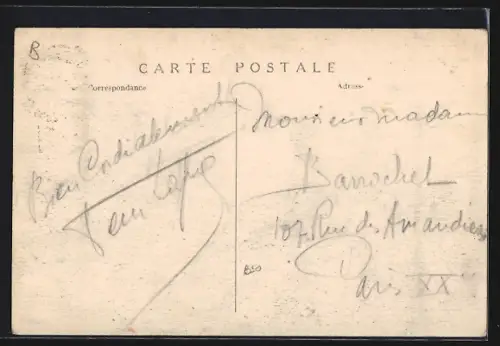 B
CARTE POSTALE
Correspondance
Adresse
Bien Cordialement
Monsieur madame
Barrochet
107 Rue des Amandiers
Paris XX